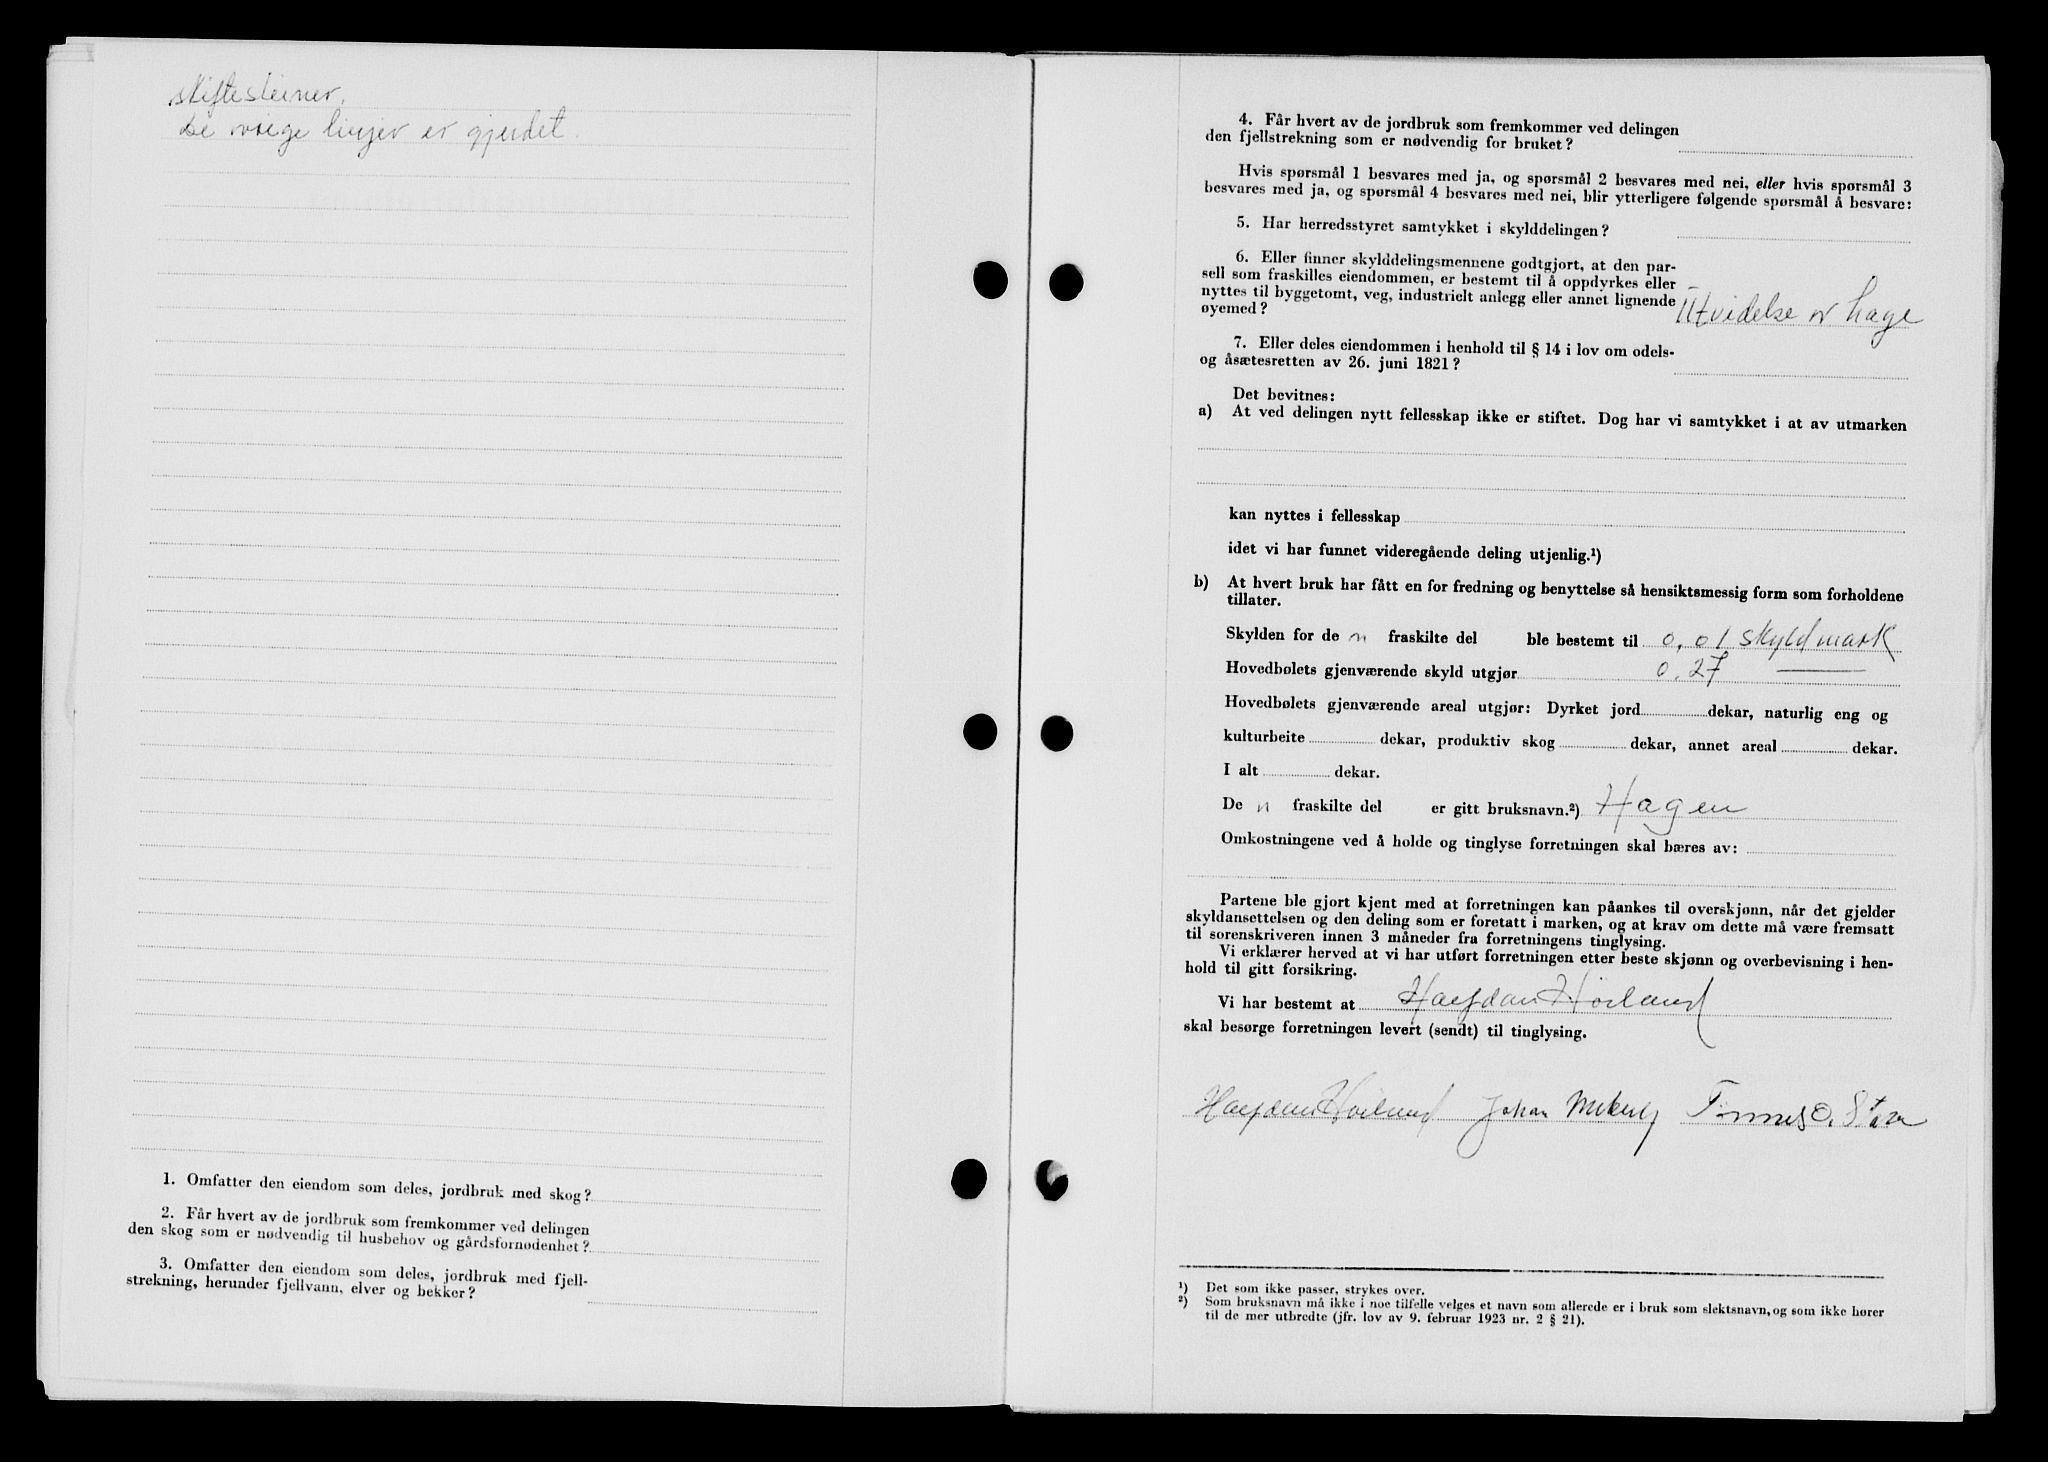 skiftesteiner.
de øvrige linjer er gjerdet.
1. Omfatter den eiendom som deles, jordbruk med skog?
2. Får hvert av de jordbruk som fremkommer ved delingen
den skog som er nødvendig til husbehov og gårdsfornødenhet?
3. Omfatter den eiendom som deles, jordbruk med fjell-
strekning, herunder fjellvann, elver og bekker?
4. Får hvert av de jordbruk som fremkommer ved delingen
den fjellstrekning som er nødvendig for bruket?
Hvis spørsmål 1 besvares med ja, og spørsmål 2 besvares med nei, eller hvis spørsmål 3
besvares med ja, og spørsmål 4 besvares med nei, blir ytterligere følgende spørsmål å besvare:
5. Har herredsstyret samtykket i skylddelingen?
6. Eller finner skylddelingsmennene godtgjort, at den par-
sell som fraskilles eiendommen, er bestemt til å oppdyrkes eller
nyttes til byggetomt, veg, industrielt anlegg eller annet lignende
øyemed? Utvidelse av hage
7. Eller deles eiendommen i henhold til § 14 i lov om odels-
og åsætesretten av 26. juni 1821?
Det bevitnes:
a) At ved delingen nytt fellesskap ikke er stiftet. Dog har vi samtykket i at av utmarken
kan nyttes i fellesskap
idet vi har funnet videregående deling utjenlig.¹)
b) At hvert bruk har fått en for fredning og benyttelse så hensiktsmessig form som forholdene
tillater.
Skylden for de n fraskilte del ble bestemt til 0,01 skyldmark
Hovedbølets gjenværende skyld utgjør 0,27
Hovedbølets gjenværende areal utgjør: Dyrket jord dekar, naturlig eng og
kulturbeite dekar, produktiv skog dekar, annet areal dekar.
I alt dekar.
De n fraskilte del er gitt bruksnavn.²) Hagen
Omkostningene ved å holde og tinglyse forretningen skal bæres av:
Partene ble gjort kjent med at forretningen kan påankes til overskjønn, når det gjelder
skyldansettelsen og den deling som er foretatt i marken, og at krav om dette må være fremsatt
til sorenskriveren innen 3 måneder fra forretningens tinglysing.
Vi erklærer herved at vi har utført forretningen etter beste skjønn og overbevisning i hen-
hold til gitt forsikring.
Vi har bestemt at Halfdan Hòiland
skal besørge forretningen levert (sendt) til tinglysing.
Halfdan Hòiland Johan Tønnes O.
¹) Det som ikke passer, strykes over.
²) Som bruksnavn må ikke i noe tilfelle velges et navn som allerede er i bruk som slektsnavn, og som ikke hører
til de mer utbredte (jfr. lov av 9. februar 1923 nr. 2 § 21).